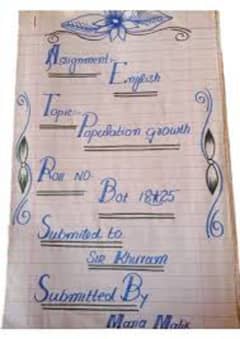 Assignment:-
English
Topic:-
Population growth
Roll NO.
Bot 18#25
Submited to
SIR Khuram
Submitted By
Maria Malik